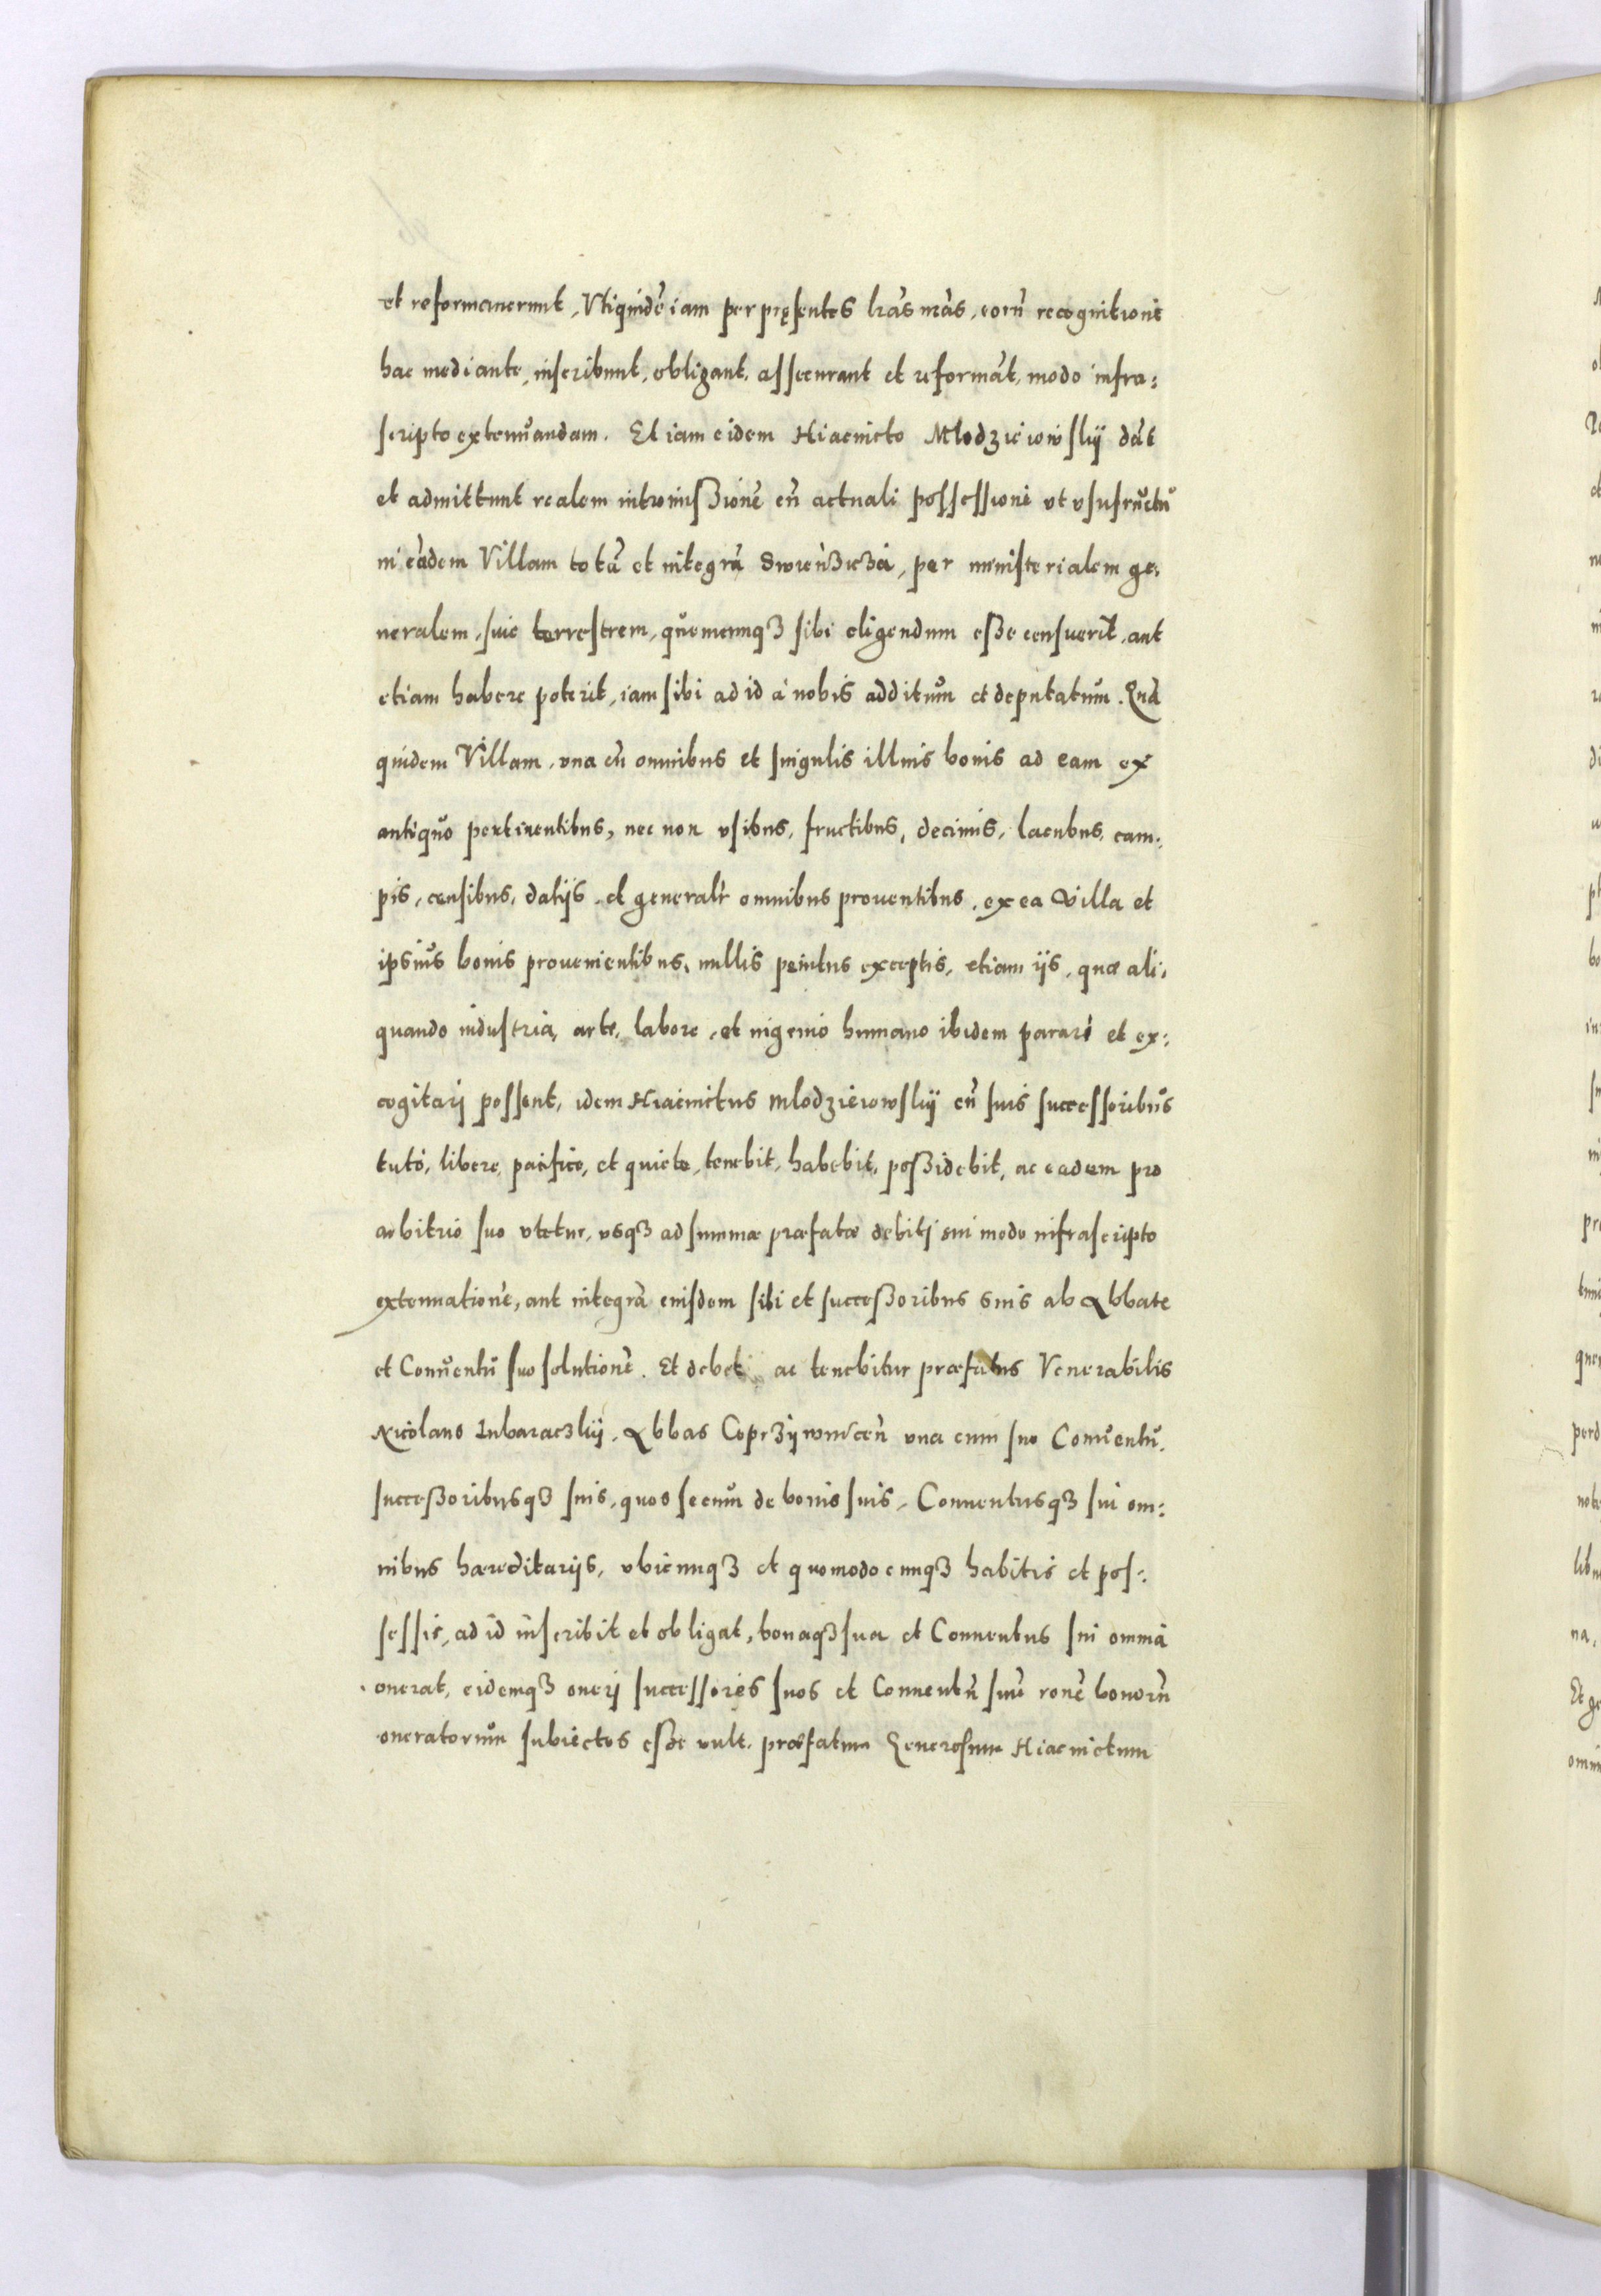 et reformauerunt, Vtiquidē iam per pręsentes lrãs nrãs, eorũ recognitione
hac mediante, inscribunt, obligant, assecurant et reformãt, modo infra:
scripto extenuandam. Et iam eidem Hiacincto Mlodzieiowskij dãt
et admittunt realem intromißionẽ cũ actuali possessione vt vsufructũ
in eãdem Villam totã et integrã per ministerialem ge:
neralem, siue terrestrem, quemcunqʒ sibi eligendum eße censuerit, aut
etiam habere poterit, iam sibi ad id à nobis additum et deputatum. Quã
quidem Villam, vna cũ omnibus et singulis illius bonis ad eam ex
antiquo pertinentibus, nec non vsibus, fructibus, decimis, lacubus, cam:
pis, censibus, datijs, et generalr̃ omnibus prouentibus, ex ea Villa et
ipsius bonis prouenientibus, nullis penitus exceptis, etiam ijs, quæ ali:
quando industria, arte, labore, et ingenio humano ibidem parari et ex:
cogitarj possent, idem Hiacinctus Mlodzieiowskij cũ suis successoribus
tutò, liberè, pacificè, et quietè, tenebit, habebit, poßidebit, ac eadem pro
arbitrio suo vtetur, vsqʒ ad summæ præfatæ debitj sui modo infrascripto
extenuationẽ, aut integrã eiusdem sibi et succeßoribus suis ab Abbate
et Conuentu suo solutionẽ. Et debet ac tenebitur præfatus Venerabilis
Nicolaus Abbas vna cum suo Conuentu,
succeßoribusqʒ suis, quos secum de bonis suis, Conuentusqʒ sui om:
nibus hæreditarijs, vbicunqʒ et quomodocunqʒ habitis et pos:
sessis, ad id inscribit et obligat, bonaqʒ sua et Conuentus sui omnia
onerat, eidemqʒ onerj successores suos et Conuentũ suũ ronẽ bonorũ
oneratorum subiectos eße vult, præfatum Generosum Hiacinctum